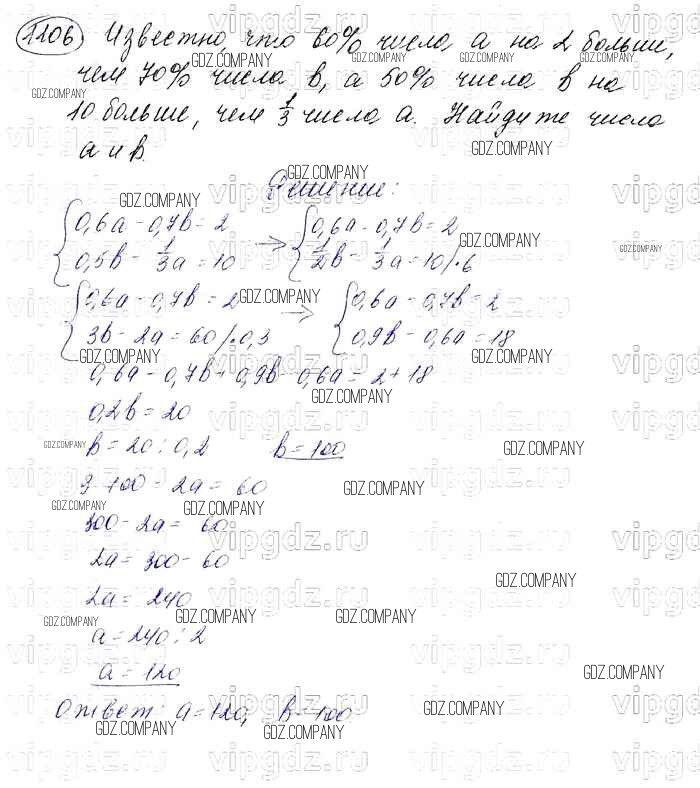 1106 Известно, что 60% числа a на 2 больше,
чем 70% числа b, а 50% числа b на
10 больше, чем 1/3 числа a. Найдите числа
a и b.
Решение:
{0,6a - 0,7b = 2 → {0,6a - 0,7b = 2
{0,5b - 1/3a = 10 {1/2b - 1/3a = 10 /·6
{0,6a - 0,7b = 2 → {0,6a - 0,7b = 2
{3b - 2a = 60 /·0,3 {0,9b - 0,6a = 18
0,6a - 0,7b + 0,9b - 0,6a = 2 + 18
0,2b = 20
b = 20 : 0,2 b = 100
3·100 - 2a = 60
300 - 2a = 60
2a = 300 - 60
2a = 240
a = 240 : 2
a = 120
Ответ: a = 120, b = 100
GDZ.COMPANY
vipgdz.ru